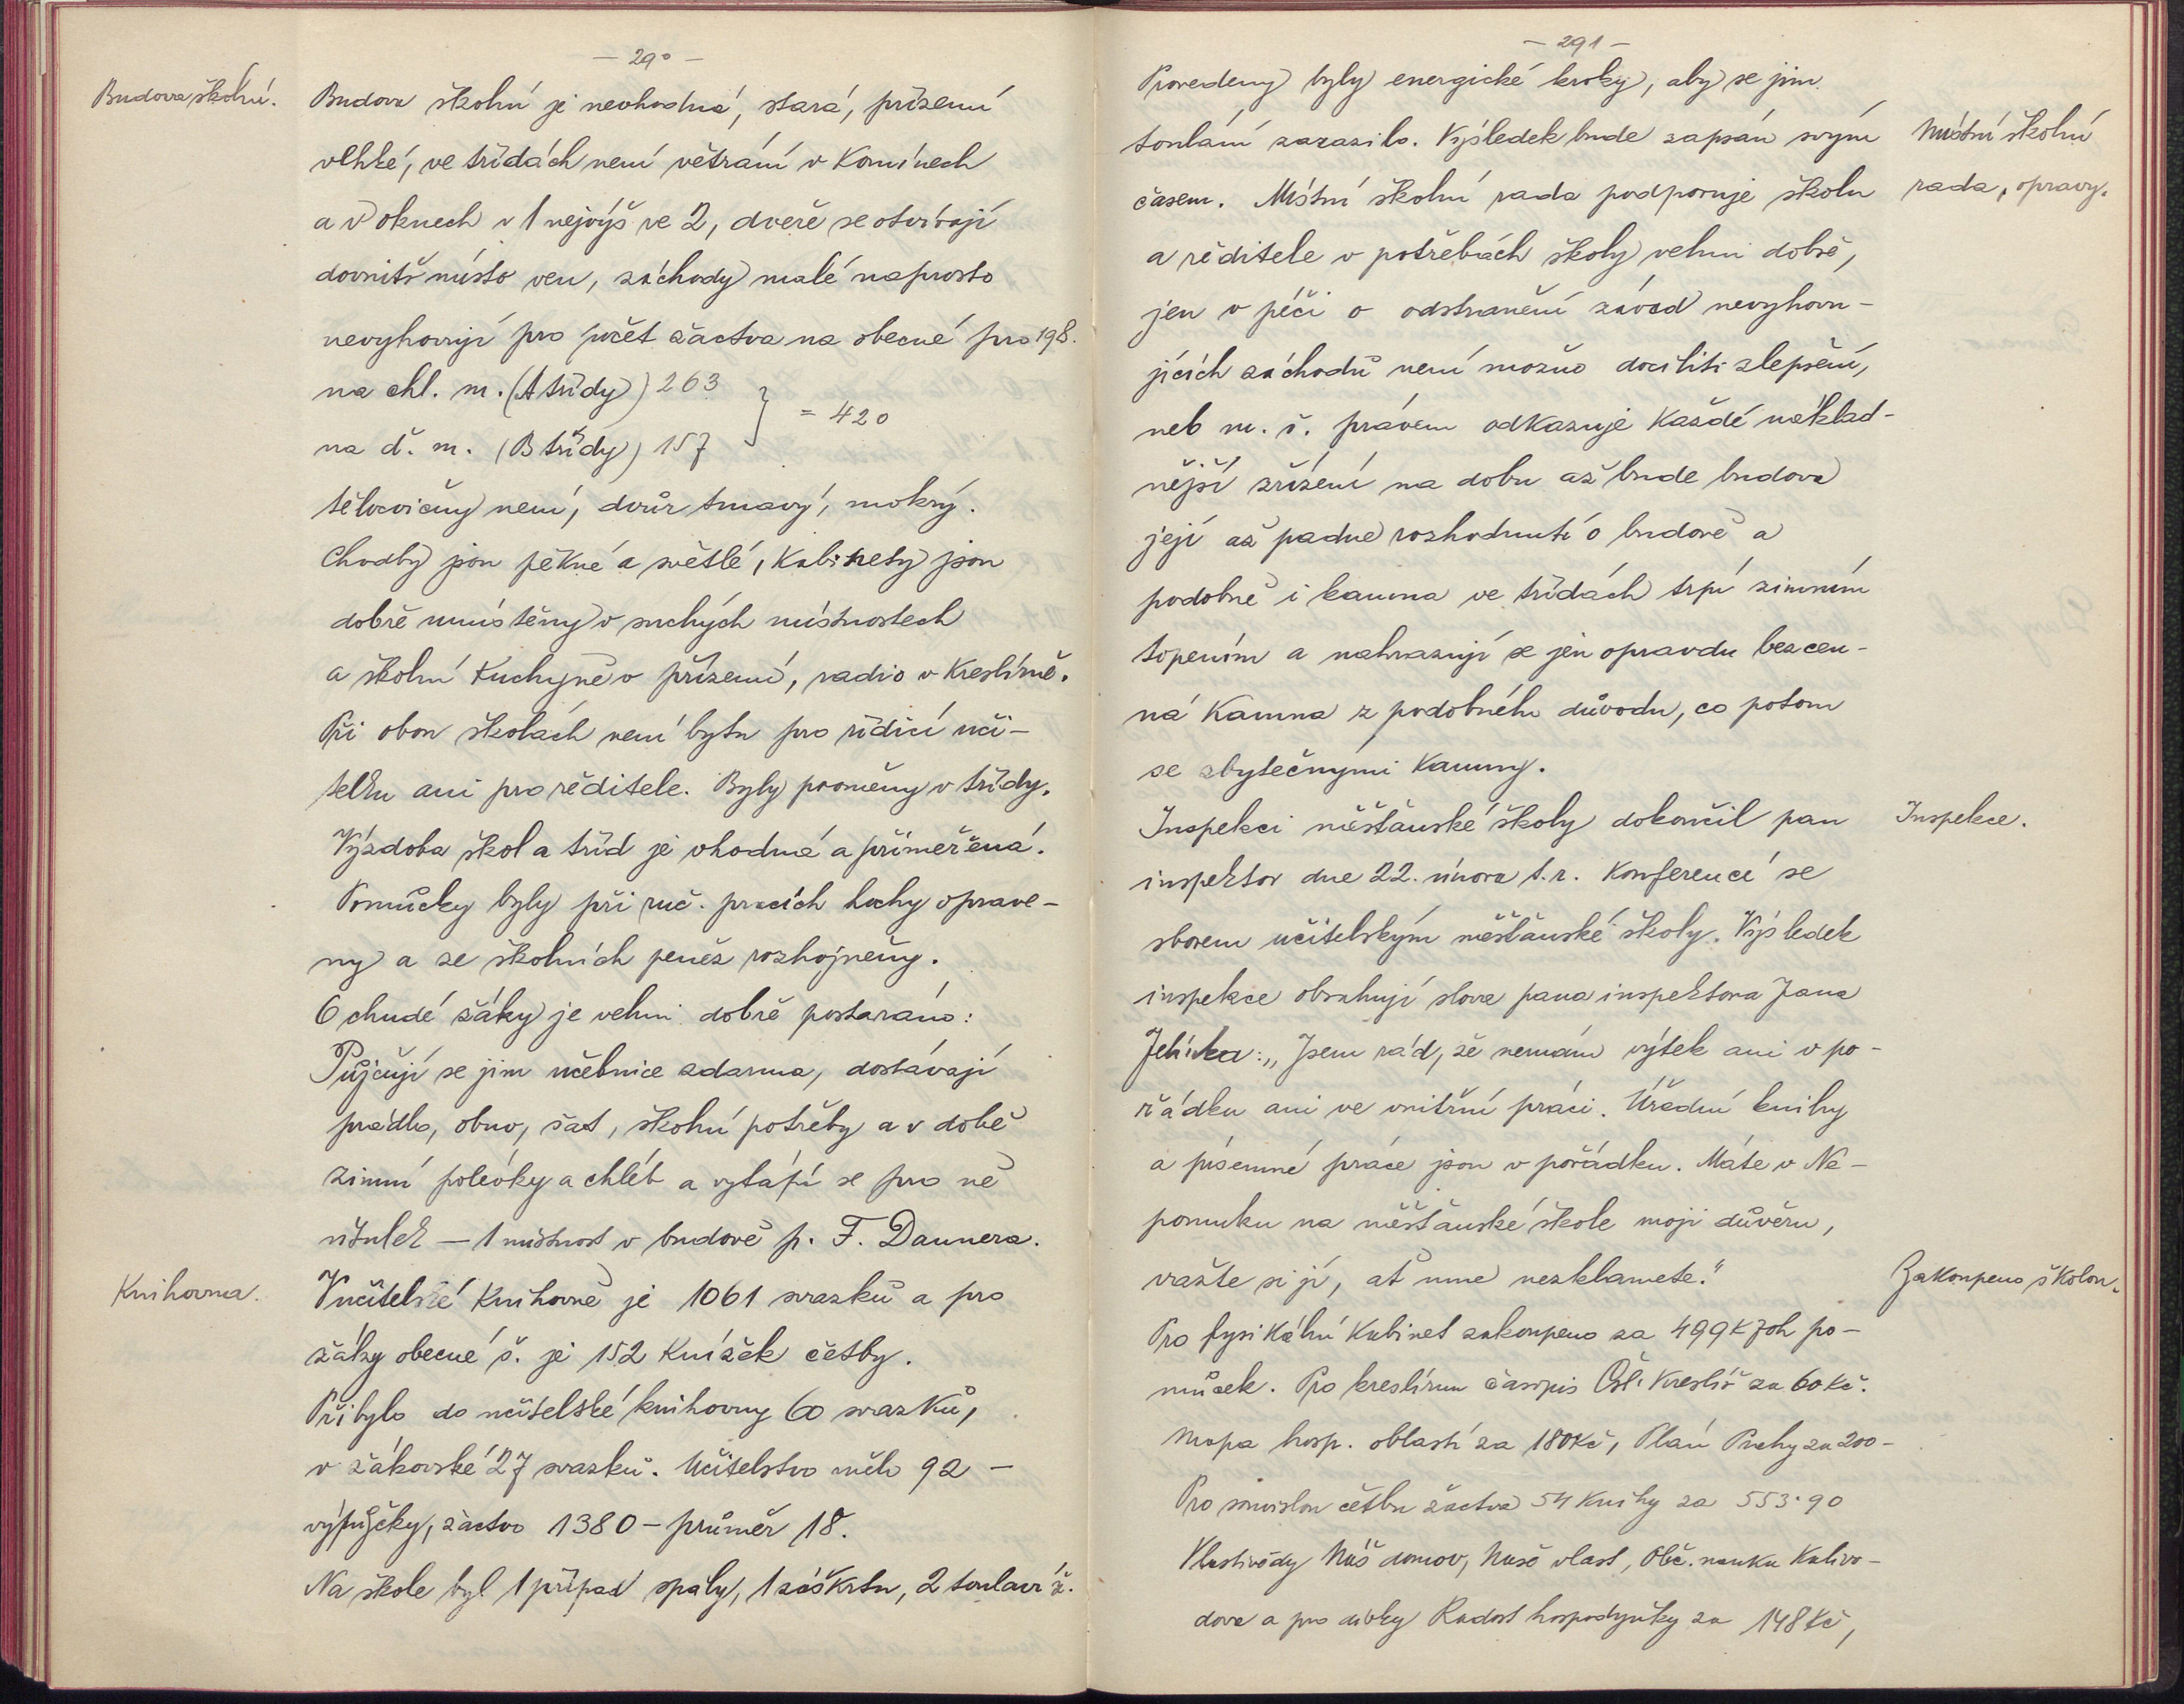 — 290 —
Budova školní.
Budova školní je nevhodná, stará, přízemí
vlhké, ve třídách není větrání v komínech
a v oknech v 1 nejvýš ve 2, dveře se otvírají
dovnitř místo ven, záchody malé naprosto
nevyhovují pro počet žactva na obecné pro 198.
na chl. m. (A třídy) 263
} = 420
na d. m. (B třídy) 157
tělocvičny není, dvůr tmavý, mokrý.
Chodby jsou pěkné a světlé, kabinety jsou
dobře umístěny v suchých místnostech
a školní kuchyně v přízemí, radio v kreslírně.
Při obou školách není bytu pro řídící uči-
telku ani pro ředitele. Byly proměny v třídy.
Výzdoba škol a tříd je vhodná a přiměřená.
Pomůcky byly při ruč. pracích hochy oprave-
ny a ze školních peněz rozhojněny.
O chudé žáky je velmi dobře postaráno:
Půjčují se jim učebnice zdarma, dostávají
prádlo, obuv, šat, školní potřeby a v době
zimní polévky a chléb a vytápí se pro ně
útulek — 1 místnost v budově p. F. Daunera.
Knihovna.
V učitelské knihovně je 1061 svazků a pro
žáky obecné š. je 152 knížek četby.
Přibylo do učitelské knihovny 60 svazků,
v žákovské 27 svazků. Učitelstvo mělo 92 —
výpůjčky, žactvo 1380 — průměr 18.
Na škole byl 1 případ spály, 1 záškrtu, 2 toulaví ž.
— 291 —
Provedeny byly energické kroky, aby se jim
toulání zarazilo. Výsledek bude zapsán svým
časem. Místní školní rada podporuje školu
Místní školní
rada, opravy.
a ředitele v potřebách školy velmi dobře,
jen v péči o odstranění závad nevyhovu-
jících záchodů není možno docíliti zlepšení,
neb m. š. právem odkazuje každé náklad-
nější zřízení na dobu až bude budova
její až padne rozhodnutí o budově a
podobně i kamna ve třídách trpí zimním
topením a nahrazují se jen opravdu bezcen-
ná kamna z podobného důvodu, co potom
se zbytečnými kamny.
Inspekci měšťanské školy dokončil pan
Inspekce.
inspektor dne 22. února t. r. konferencí se
sborem učitelským měšťanské školy. Výsledek
inspekce obsahují slova pana inspektora Jana
Jelínka: „Jsem rád, že nemám výtek ani v po-
řádku ani ve vnitřní práci. Úřední knihy
a písemné práce jsou v pořádku. Máte v Ne-
pomuku na měšťanské škole moji důvěru,
važte si jí, ať mne nezklamete."
Zakoupeno školou.
Pro fysikální kabinet zakoupeno za 499 K 70h po-
můcek. Pro kreslírnu časopis Čsl. Kreslíř za 60 Kč.
Mapa hosp. oblastí za 180 Kč, Plán Prahy za 200 -
Pro souvislou četbu žactva 54 knihy za 553·90
Vlastivědy Náš domov, Naše vlast, Obč. nauku Kalivo-
dova a pro dívky Radost hospodyňky za 148 Kč,